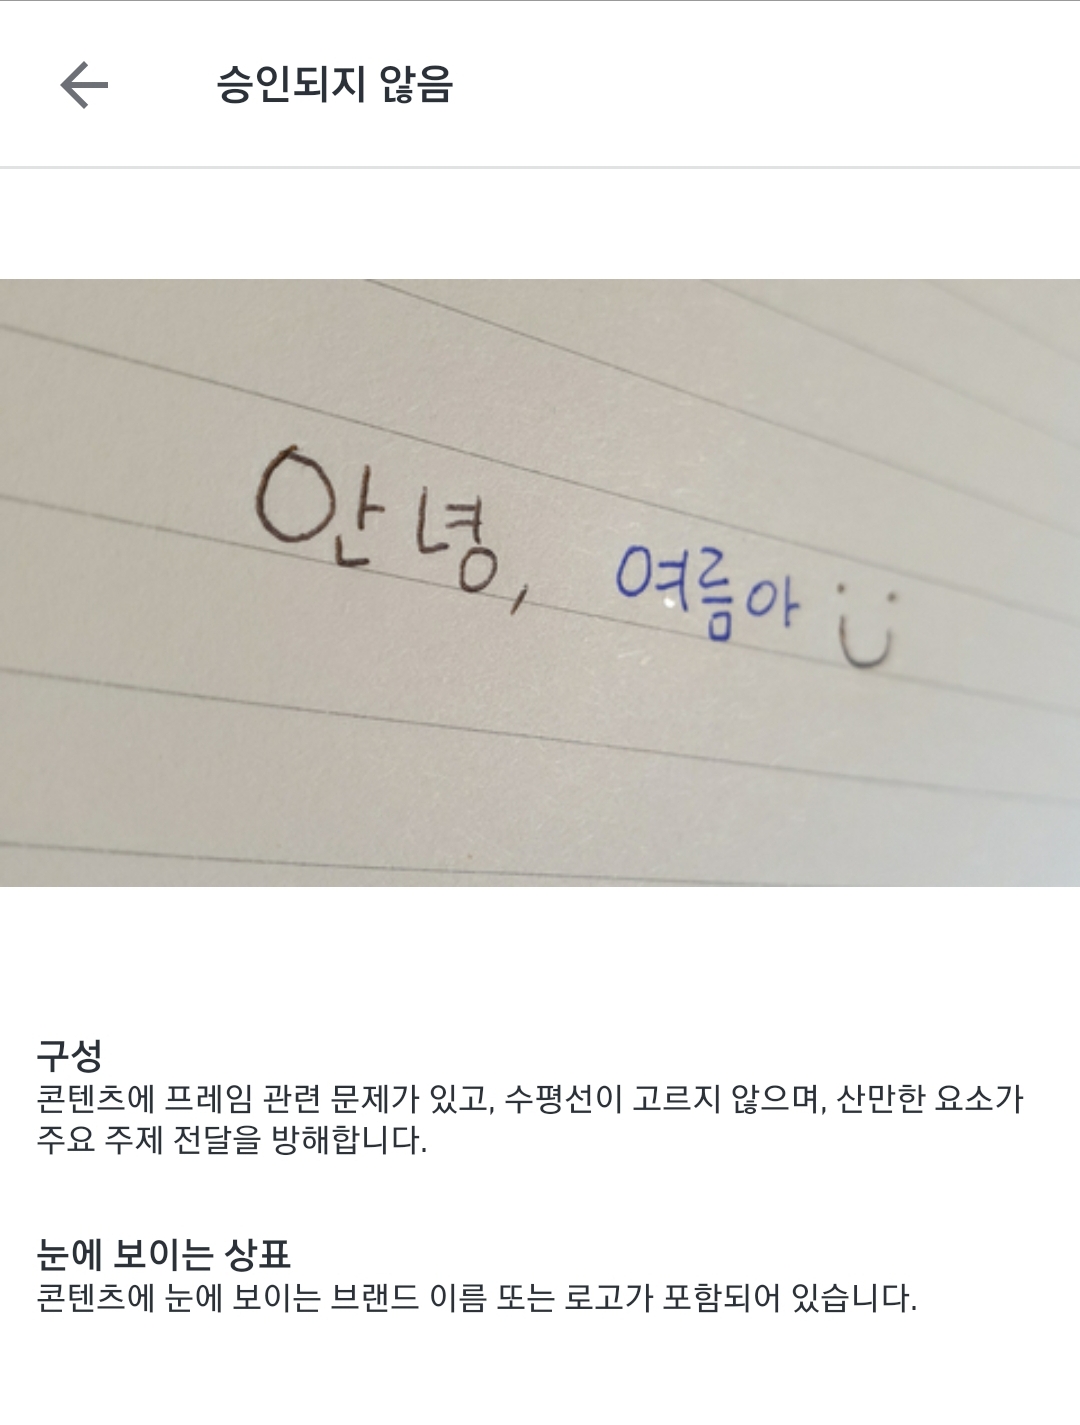 승인되지 않음
안녕, 여름아
구성
콘텐츠에 프레임 관련 문제가 있고, 수평선이 고르지 않으며, 산만한 요소가
주요 주제 전달을 방해합니다.
눈에 보이는 상표
콘텐츠에 눈에 보이는 브랜드 이름 또는 로고가 포함되어 있습니다.